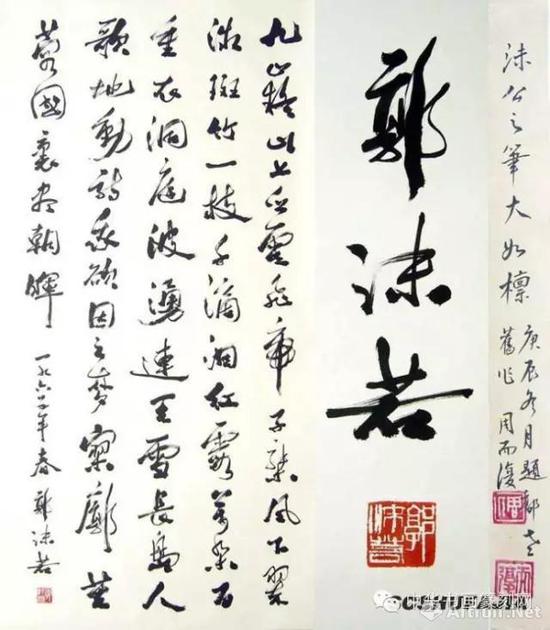 沫公之筆大如檁
庚辰冬月題郭老
舊作 周而復
郭沫若
郭沫若
九嶷山上白雲飛帝子乘風下翠
微斑竹一枝千滴淚紅霞萬朵百
重衣洞庭波湧連天雪長島人
歌地動詩我欲因之夢寥廓芙
蓉國裏盡朝暉 一九六年春 郭沫若
Artron.Net